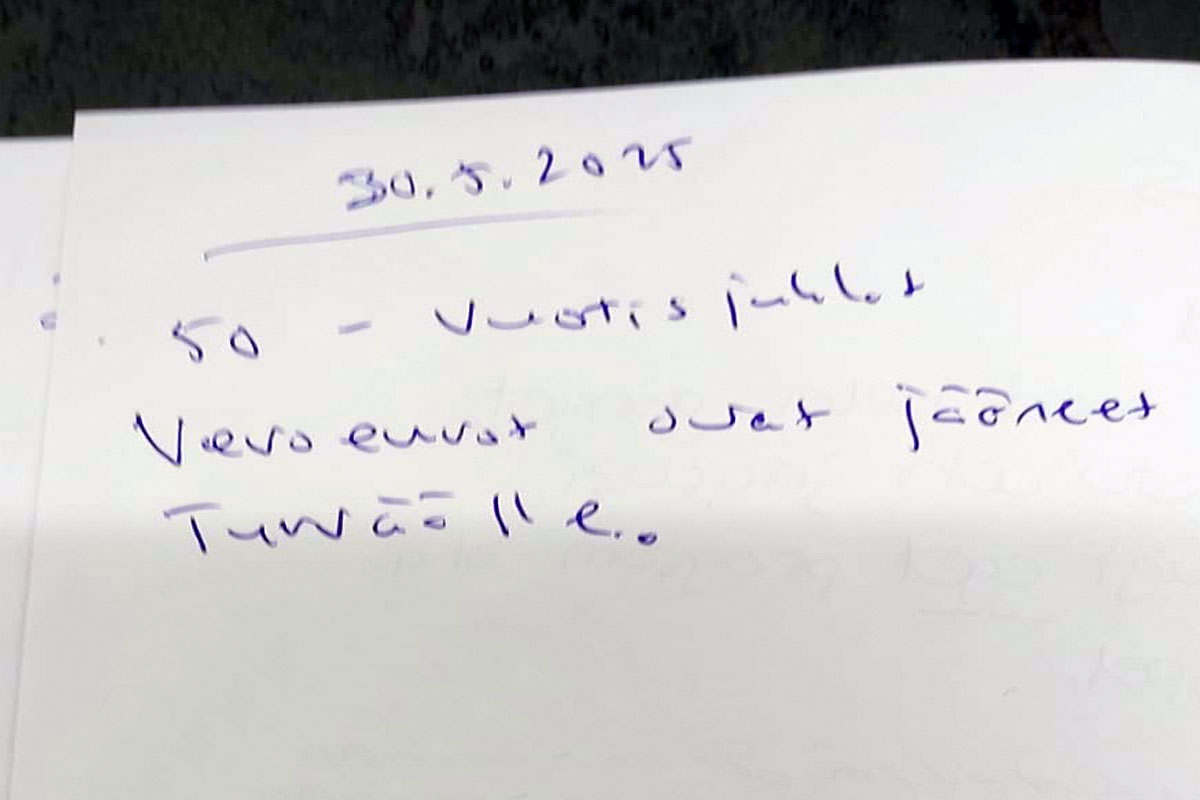 30.5.2025
50 - vuotisjuhlat
Veroeurot ovat jääneet